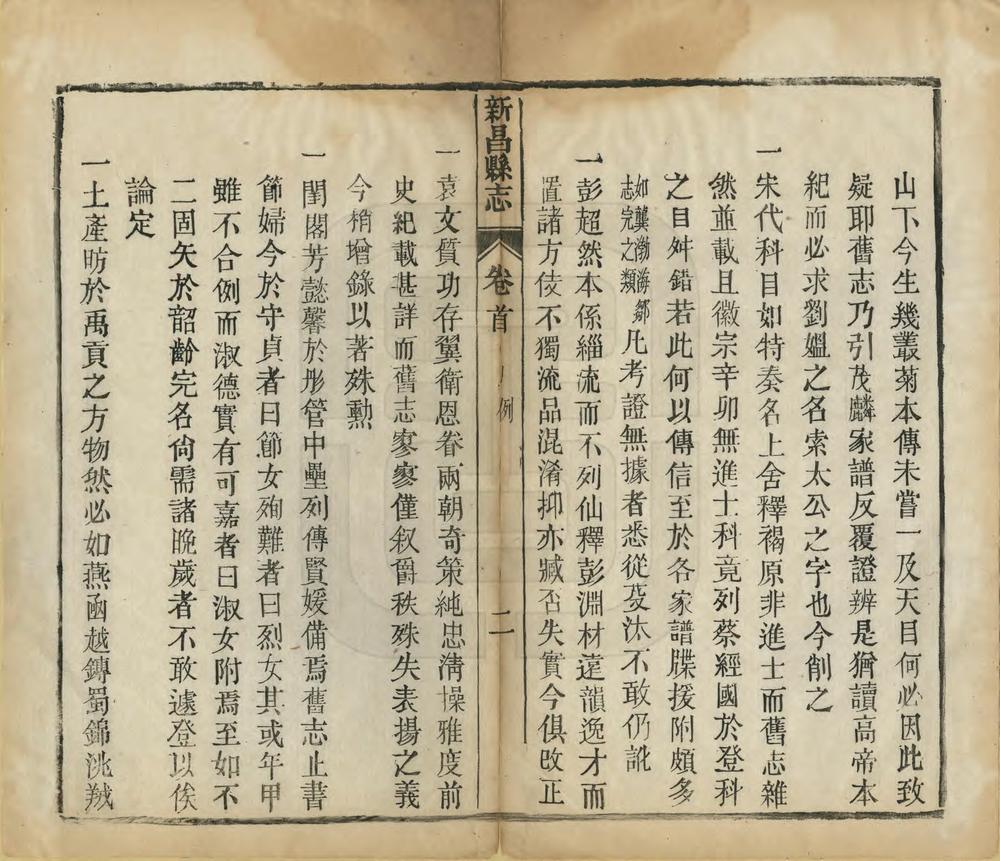 山下今生幾叢菊本傳未嘗一及天目何必因此致
疑耶舊志乃引茂麟家譜反覆證辨是猶讀高帝本
紀而必求劉媼之名索太公之字也今削之
一宋代科目如特奏名上舍釋褐原非進士而舊志雜
然並載且徽宗辛卯無進士科竟列蔡經國於登科
之目舛錯若此何以傳信至於各家譜牒援附頗多
如龔渤海鄒
志完之類凡考證無據者悉從芟汰不敢仍訛
一彭超然本係緇流而不列仙釋彭淵材遠韻逸才而
置諸方伎不獨流品混淆抑亦臧否失實今俱改正
新昌縣志 卷首 例 二
一袁文質功存翼衛恩眷兩朝奇策純忠清操雅度前
史紀載甚詳而舊志寥寥僅叙爵秩殊失表揚之義
今稍增錄以著殊勳
一閨閣芳懿馨於彤管中壘列傳賢媛備焉舊志止書
節婦今於守貞者曰節女殉難者曰烈女其或年甲
雖不合例而淑德實有可嘉者曰淑女附焉至如不
二固矢於韶齡完名尙需諸晚歲者不敢遽登以俟
論定
一土產昉於禹貢之方物然必如燕函越鏄蜀錦洮羢